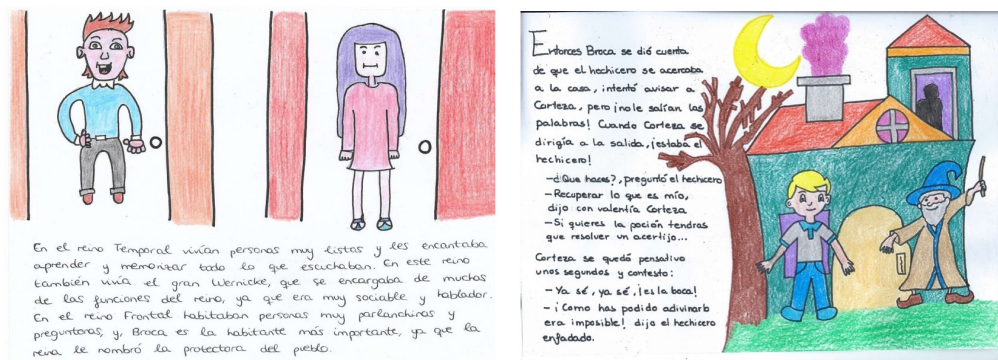 En el reino Temporal vivían personas muy listas y les encantaba
aprender y memorizar todo lo que escuchaban. En este reino
también vivía el gran Wernicke, que se encargaba de muchas
de las funciones del reino, ya que era muy sociable y hablador.
En el reino Frontal habitaban personas muy parlanchinas y
preguntonas, y, Broca es la habitante más importante, ya que la
reina le nombró la protectora del pueblo.
Entonces Broca se dió cuenta
de que el hechicero se acercaba
a la casa, intentó avisar a
Corteza, pero ¡no le salían las
palabras! Cuando Corteza se
dirigía a la salida, ¡estaba el
hechicero!
-¿Que haces?, preguntó el hechicero
- Recuperar lo que es mío,
dijo con valentía Corteza
- Si quieres la poción tendras
que resolver un acertijo...
Corteza se quedó pensativo
unos segundos y contesto:
- Ya sé, ya sé, ¡es la boca!
- ¡Como has podido adivinarlo
era imposible! dijo el hechicero
enfadado.